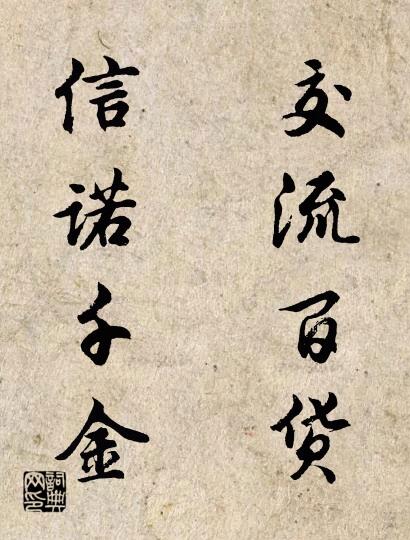 交流百货
信诺千金
詞典
网印